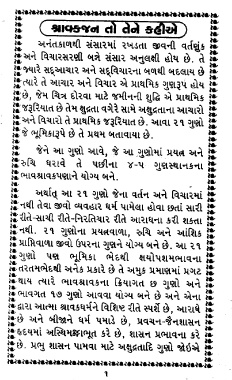 શ્રાવકજન તો તેને કહીએ
અનંતકાળથી સંસારમાં રખડતા જીવની વર્તણુંક
અને વિચારસરણી બન્ને સંસાર અનુલક્ષી હોય છે. તે
જ્યારે સદ્આચાર અને સદ્વિચારના બળથી બદલાય છે
ત્યારે તે આચાર અને વિચાર એ પ્રાથમિક ગુણરૂપ હોય
છે, જેમ ચિત્ર દોરવા માટે જમીનની શુદ્ધિ એ પ્રાથમિક
જરૂરિયાત છે તેમ ક્ષુદ્રતા વગેરે સામે અક્ષુદ્રતાના આચારો
અને વિચારો તે પ્રાથમિક જરૂરિયાત છે. આવા ૨૧ ગુણો
જે ભૂમિકારૂપે છે તે પ્રથમ બતાવાયા છે.
જેને આ ગુણો આવે, જે આ ગુણોમાં પ્રયત્ન અને
રુચિ ધરાવે તે પછીના ૪-૫ ગુણસ્થાનકના
ભાવશ્રાવકપણાને યોગ્ય બને.
અર્થાત્ આ ૨૧ ગુણો જેના વર્તન અને વિચારમાં
નથી તેવા જીવો વ્યવહાર ધર્મ પામેલા હોવા છતાં સારી
રીતે-સાચી રીતે-નિરતિચાર રીતે આરાધના કરી શકતા
નથી. ૨૧ ગુણોના પ્રયત્નવાળા, રુચિ અને આંશિક
પ્રાપ્તિવાળા જીવો ઉપરના ગુણને યોગ્ય બને છે. આ ૨૧
ગુણો પણ ભૂમિકા ભેદથી ક્ષયોપશમભાવના
તરતમભેદથી અનેક પ્રકારે છે તે અમુક પ્રમાણમાં પ્રગટ
થાય ત્યારે ભાવશ્રાવકના ક્રિયાગત છ ગુણો અને
ભાવગત ૧૭ ગુણો આવવા યોગ્ય બને છે અને એના
દ્વારા આત્મા શ્રાવકધર્મને વિશિષ્ટ રીતે સ્પર્શે છે, આરાધે
છે અને બીજાને ધર્મ પમાડે છે, પ્રવચન-જૈનશાસન
હૃદયમાં અસ્થિમજ્જાભૂત કરે છે, શાસન પ્રભાવના કરે
છે. પ્રભુ શાસન પામવા માટે અક્ષુદ્રતાદિ ગુણો જોઈએ
૧